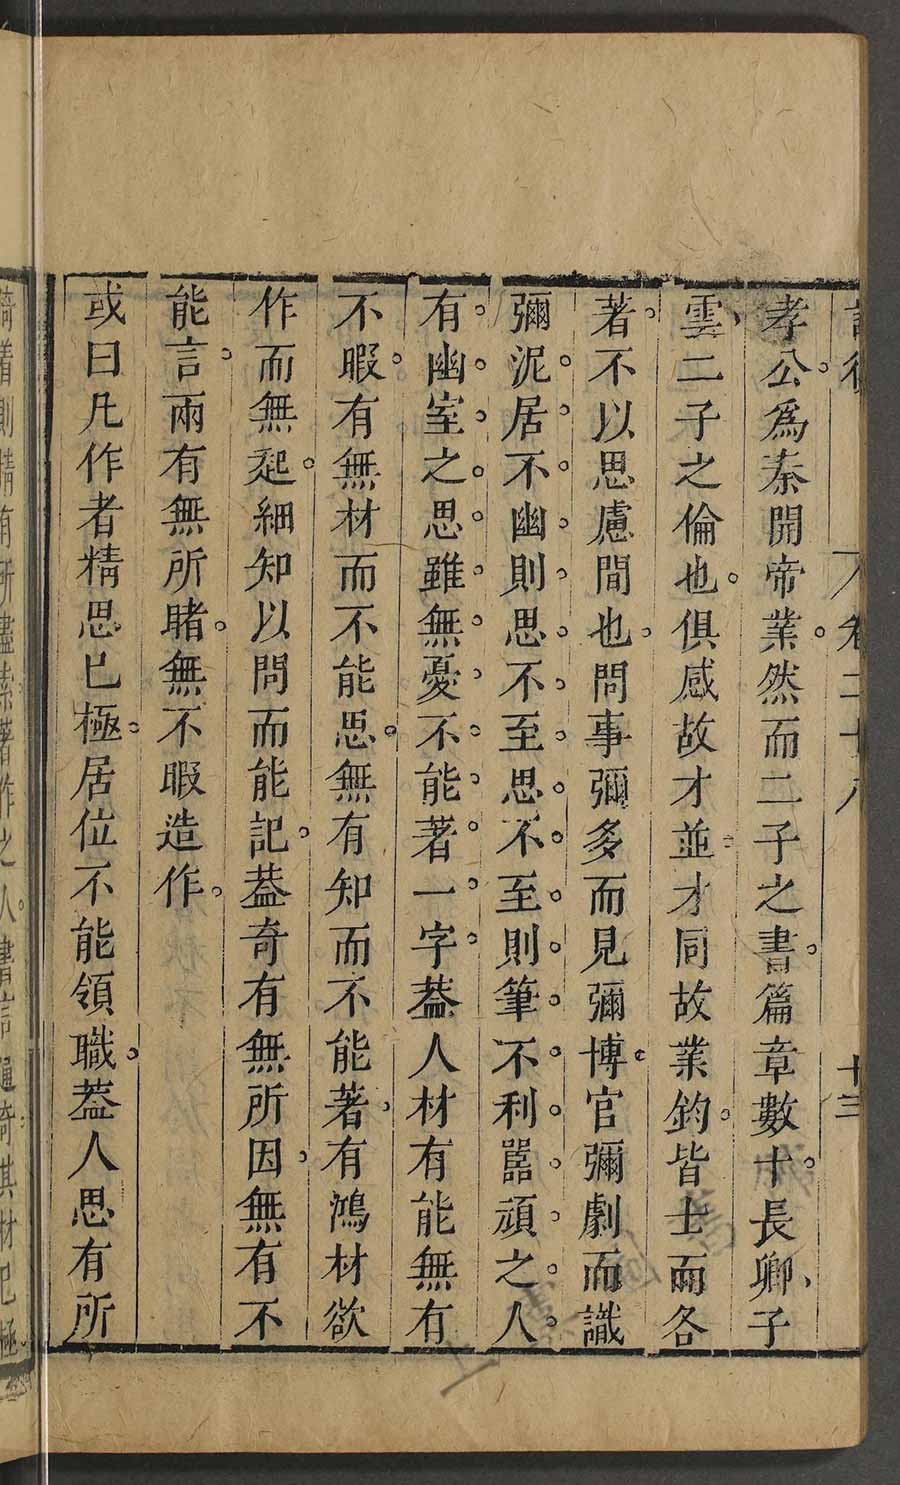 卷二十八 十三
孝公爲秦開帝業然而二子之書篇章數十長卿子
雲二子之倫也俱感故才並才同故業鈞皆士而各
著不以思慮間也問事彌多而見彌博官彌劇而識
彌泥居不幽則思不至思不至則筆不利嚚頑之人
有幽室之思雖無憂不能著一字葢人材有能無有
不暇有無材而不能思無有知而不能著有鴻材欲
作而無起細知以問而能記葢奇有無所因無有不
能言兩有無所睹無不暇造作
或曰凡作者精思已極居位不能領職葢人思有所
倚著則精有所盡索著作之人書言通奇其材已極